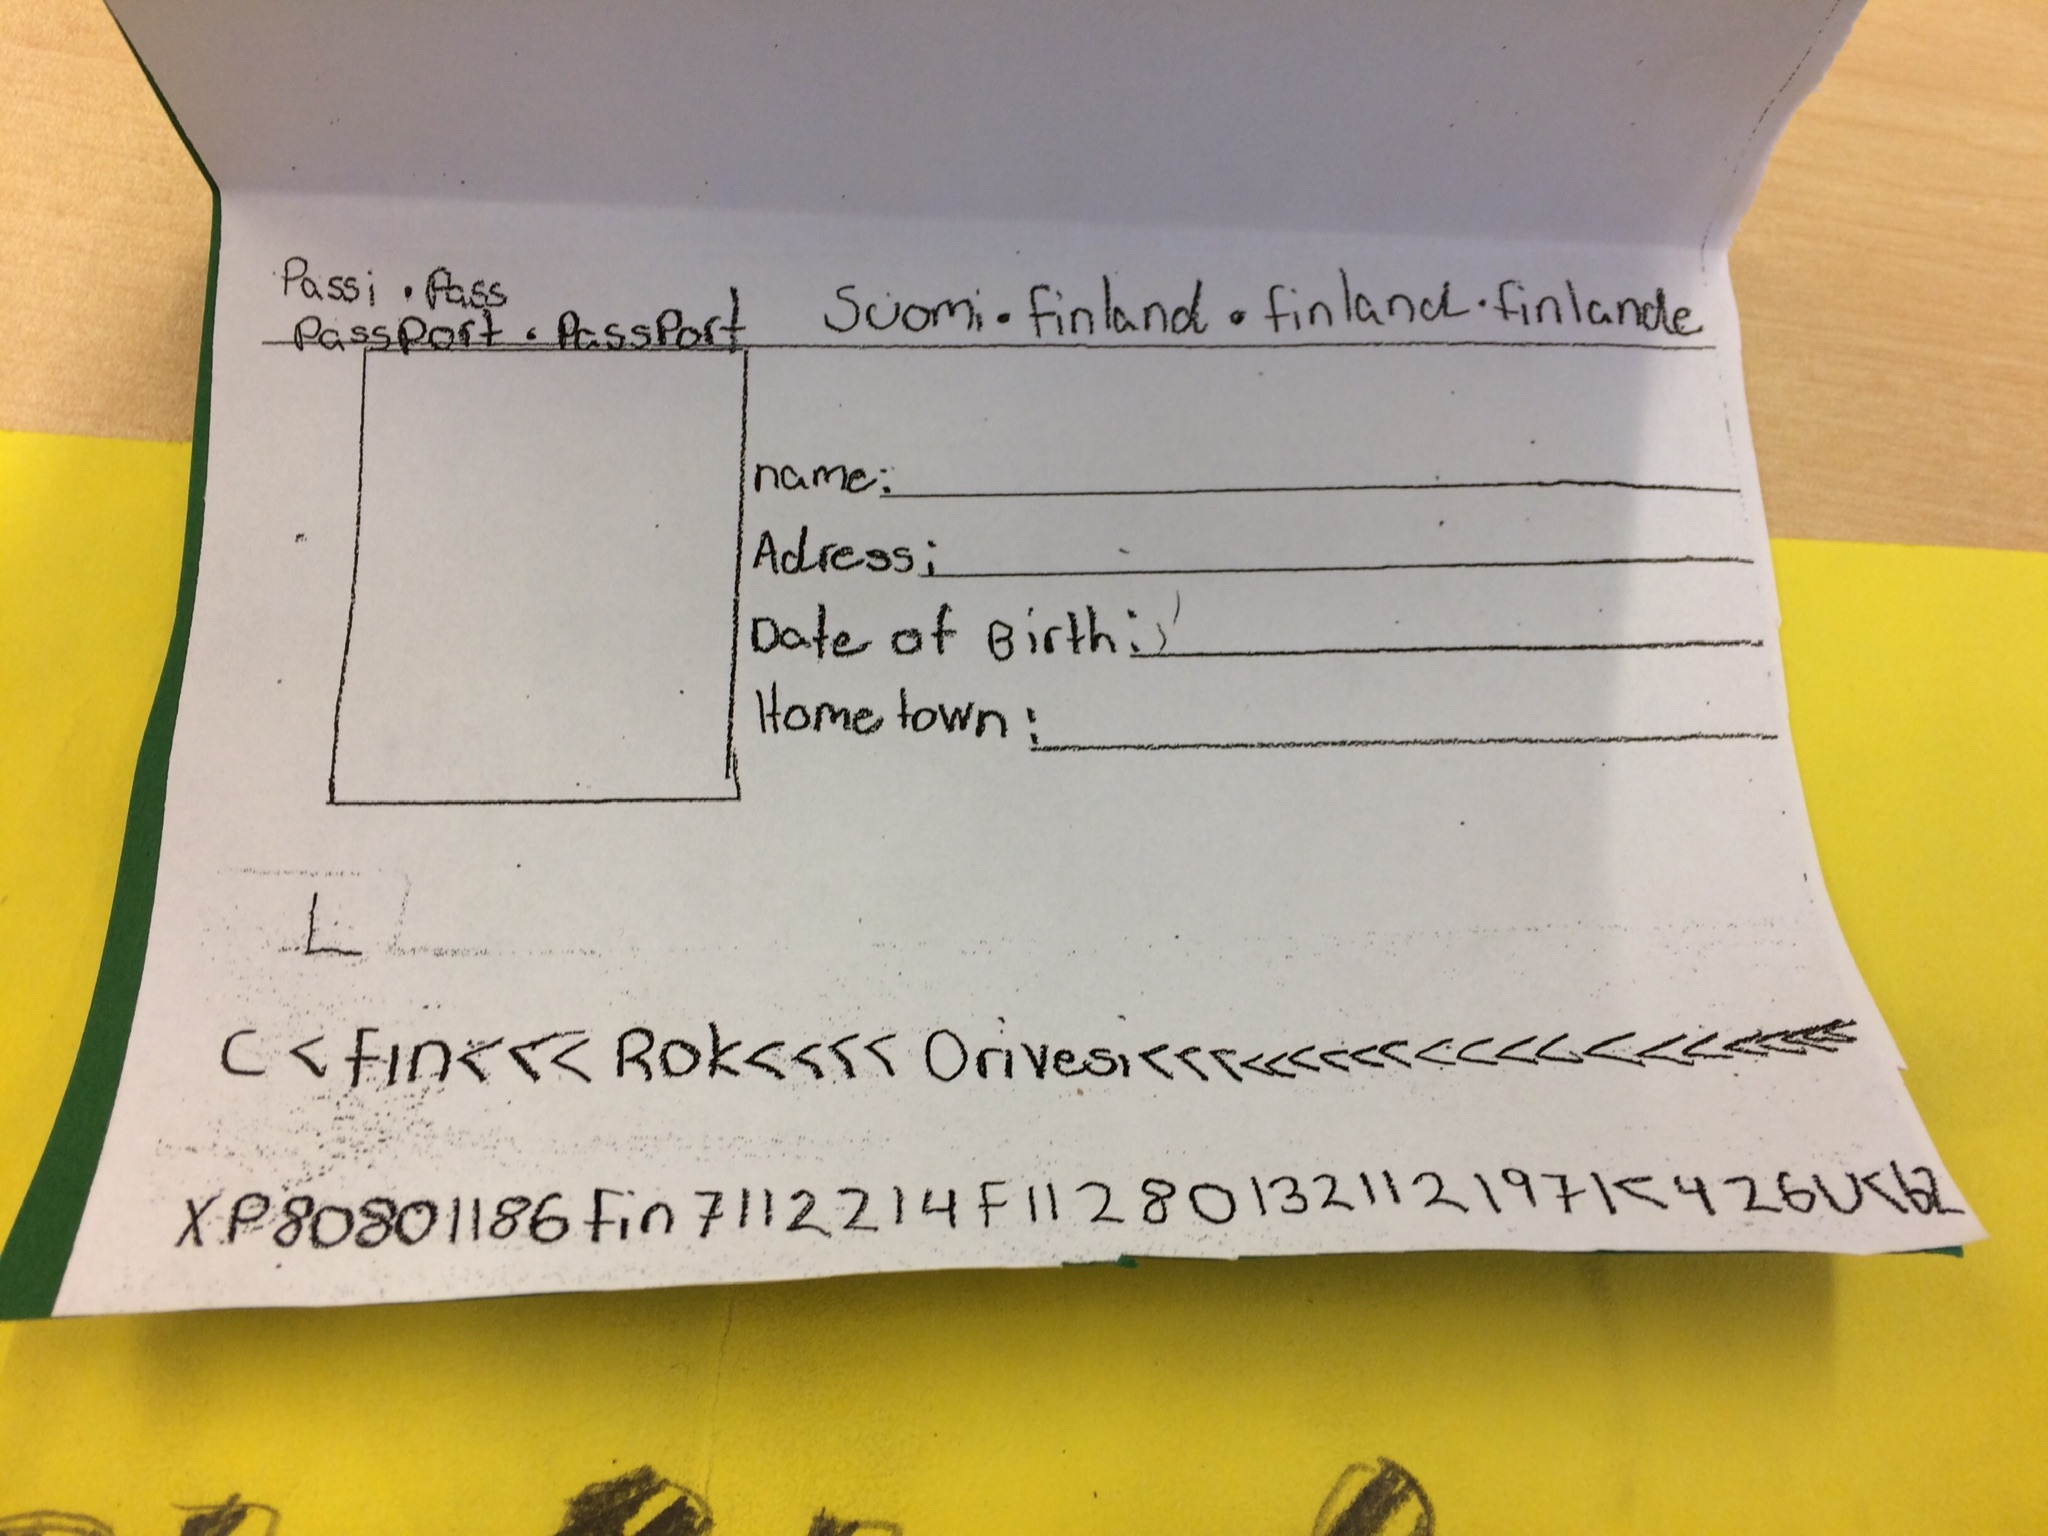 Passi · Pass
PassPort · PassPort
Suomi · finland · finland · finlande
name:
Adress:
Date of Birth:
Hometown:
L
C < fin<<< Rok<<<< Orivesi<<<<<<<<<<<<<<<<<<<<<<
XP80801186fin7112214F112801321121971<426U<62